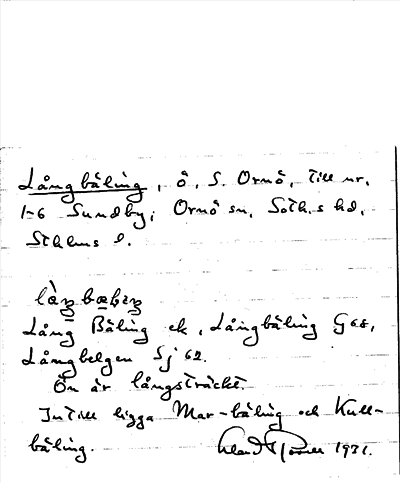 Långbåling, ö, S. Ornö, till nr.
1-6 Sundby, Ornö sn, Soth.s hd,
Sthlms l.
Lång Båling ek, Långbåling G 68,
Långbelgen Sj 62.
Ön är långsträckt.
Intill ligga Mar-båling och Kull-
båling.
1931.